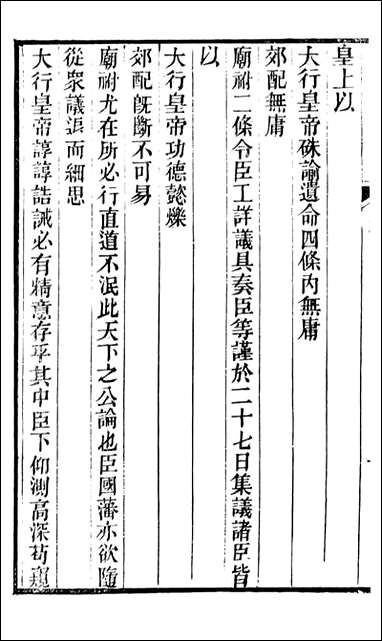 皇上以
大行皇帝硃諭遺命四條內無庸
郊配無庸
廟祔二條令臣工詳議具奏臣等謹於二十七日集議諸臣皆
以
大行皇帝功德懿爍
郊配旣斷不可易
廟祔尤在所必行直道不泯此天下之公論也臣國藩亦欲隨
從衆議退而細思
大行皇帝諄諄誥誡必有精意存乎其中臣下仰測高深茍窺